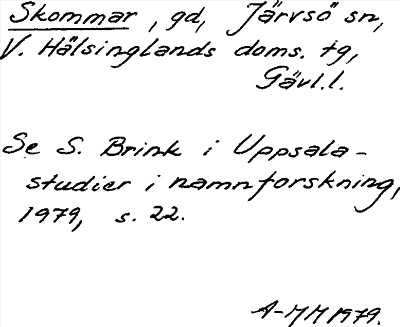 Skommar, gd, Järvsö sn,
V. Hälsinglands doms. tg,
Gävl.l.
Se S. Brink i Uppsala-
studier i namnforskning,
1979, s. 22.
A-MM 1979.